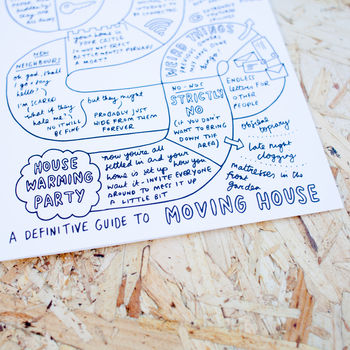 suddenly
away
key
NEW
NEIGHBOURS
oh god, shall
I go say
hello?!
I'M SCARED
what if they
hate me!?
NO IT WILL
BE FINE
but they might
PROBABLY JUST
HIDE FROM THEM
FOREVER
home is
NOT
BUT
PERHAPS
A MOAT?
WEIRD THINGS
ENDLESS
LETTERS FOR
OTHER
PEOPLE
NO-NOS
STRICTLY
NO
(IF YOU DON'T
WANT TO BRING
DOWN THE
AREA)
objectal topiary
late night
clogging
mattresses in the
front
garden
HOUSE
WARMING
PARTY
now you're all
settled in and your
home is set up how you
want it - INVITE EVERYONE
AROUND TO MESS IT UP
A LITTLE BIT
A DEFINITIVE GUIDE TO MOVING HOUSE